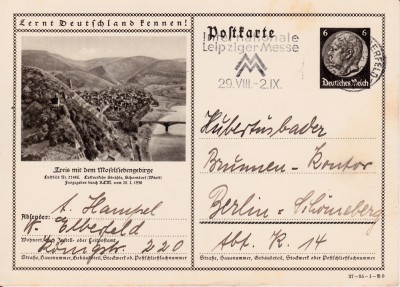 Lernt Deutschland kennen!
Postkarte
Internationale
Leipziger Messe
29.VIII.-2.IX.
6 6
Deutsches Reich
ERFELD
Treis mit dem Moselsiebengebirge
Freigegeben durch RLM. vom
Absender:
A. Hampel
W. Elberfeld
Königstr. 220
Straße, Hausnummer, Gebäudeteil, Stockwerk od. Postschließfachnummer
Hubertusbader
Brunnen-Kontor
Berlin-Schöneberg
Abt. K. 14
Straße, Hausnummer, Gebäudeteil, Stockwerk oder Postschließfachnummer